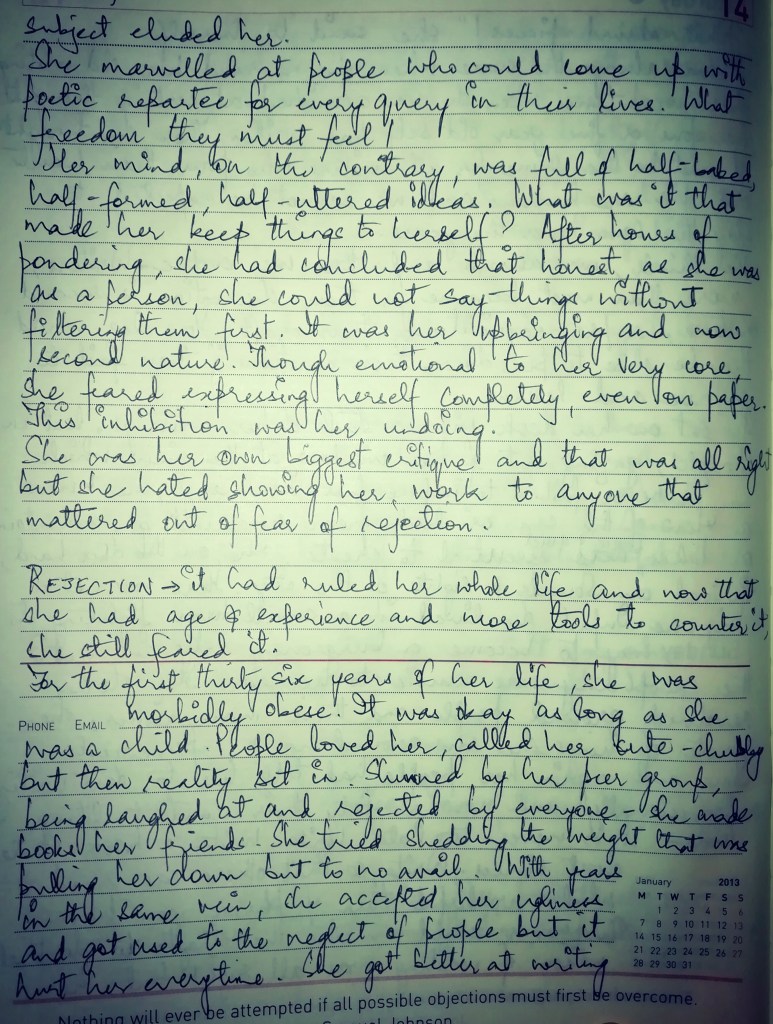 14
subject eluded her.
She marvelled at people who could come up with
poetic repartee for every query in their lives. What
freedom they must feel!
Her mind, on the contrary, was full of half-baked,
half-formed, half-uttered ideas. What was it that
made her keep things to herself? After hours of
pondering, she had concluded that honest, as she was
as a person, she could not say things without
filtering them first. It was her upbringing and now
second nature. Though emotional to her very core,
she feared expressing herself completely, even on paper.
This inhibition was her undoing.
She was her own biggest critique and that was all right
but she hated showing her work to anyone that
mattered out of fear of rejection.
REJECTION → it had ruled her whole life and now that
she had age & experience and more tools to counter it,
she still feared it.
For the first thirty six years of her life, she was
morbidly obese. It was okay as long as she
PHONE EMAIL
was a child. People loved her, called her cute-chubby
but then reality set in. Shunned by her peer group,
being laughed at and rejected by everyone - she made
books her friends. She tried shedding the weight that was
pulling her down but to no avail. With years
in the same vein, she accepted her ugliness
and got used to the neglect of people but it
hurt her everytime. She got better at writing
January 2013
M T W T F S S
1 2 3 4 5 6
7 8 9 10 11 12 13
14 15 16 17 18 19 20
21 22 23 24 25 26 27
28 29 30 31
Nothing will ever be attempted if all possible objections must first be overcome.
Samuel Johnson